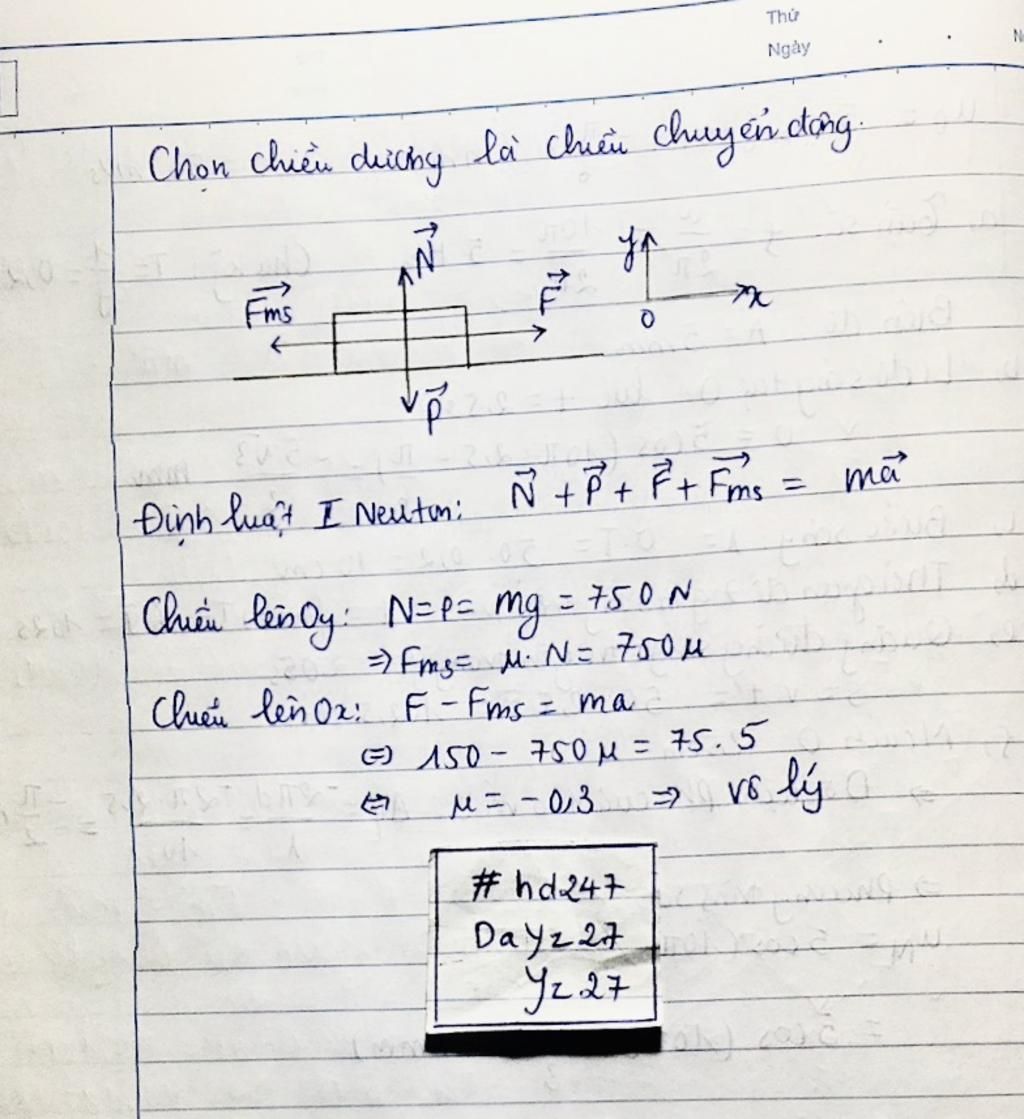 Thứ
Ngày
Chọn chiều dương là chiều chuyển động.
N
Fms
F
y
x
O
P
Định luật I Newton: N + P + F + Fms = ma
Chiếu lên Oy: N = P = mg = 750 N
⇒ Fms = μ. N = 750 μ
Chiếu lên Ox: F - Fms = ma
⇔ 150 - 750 μ = 75. 5
⇔ μ = - 0,3 ⇒ vô lý
# hd247
DaYz 27
Yz.27